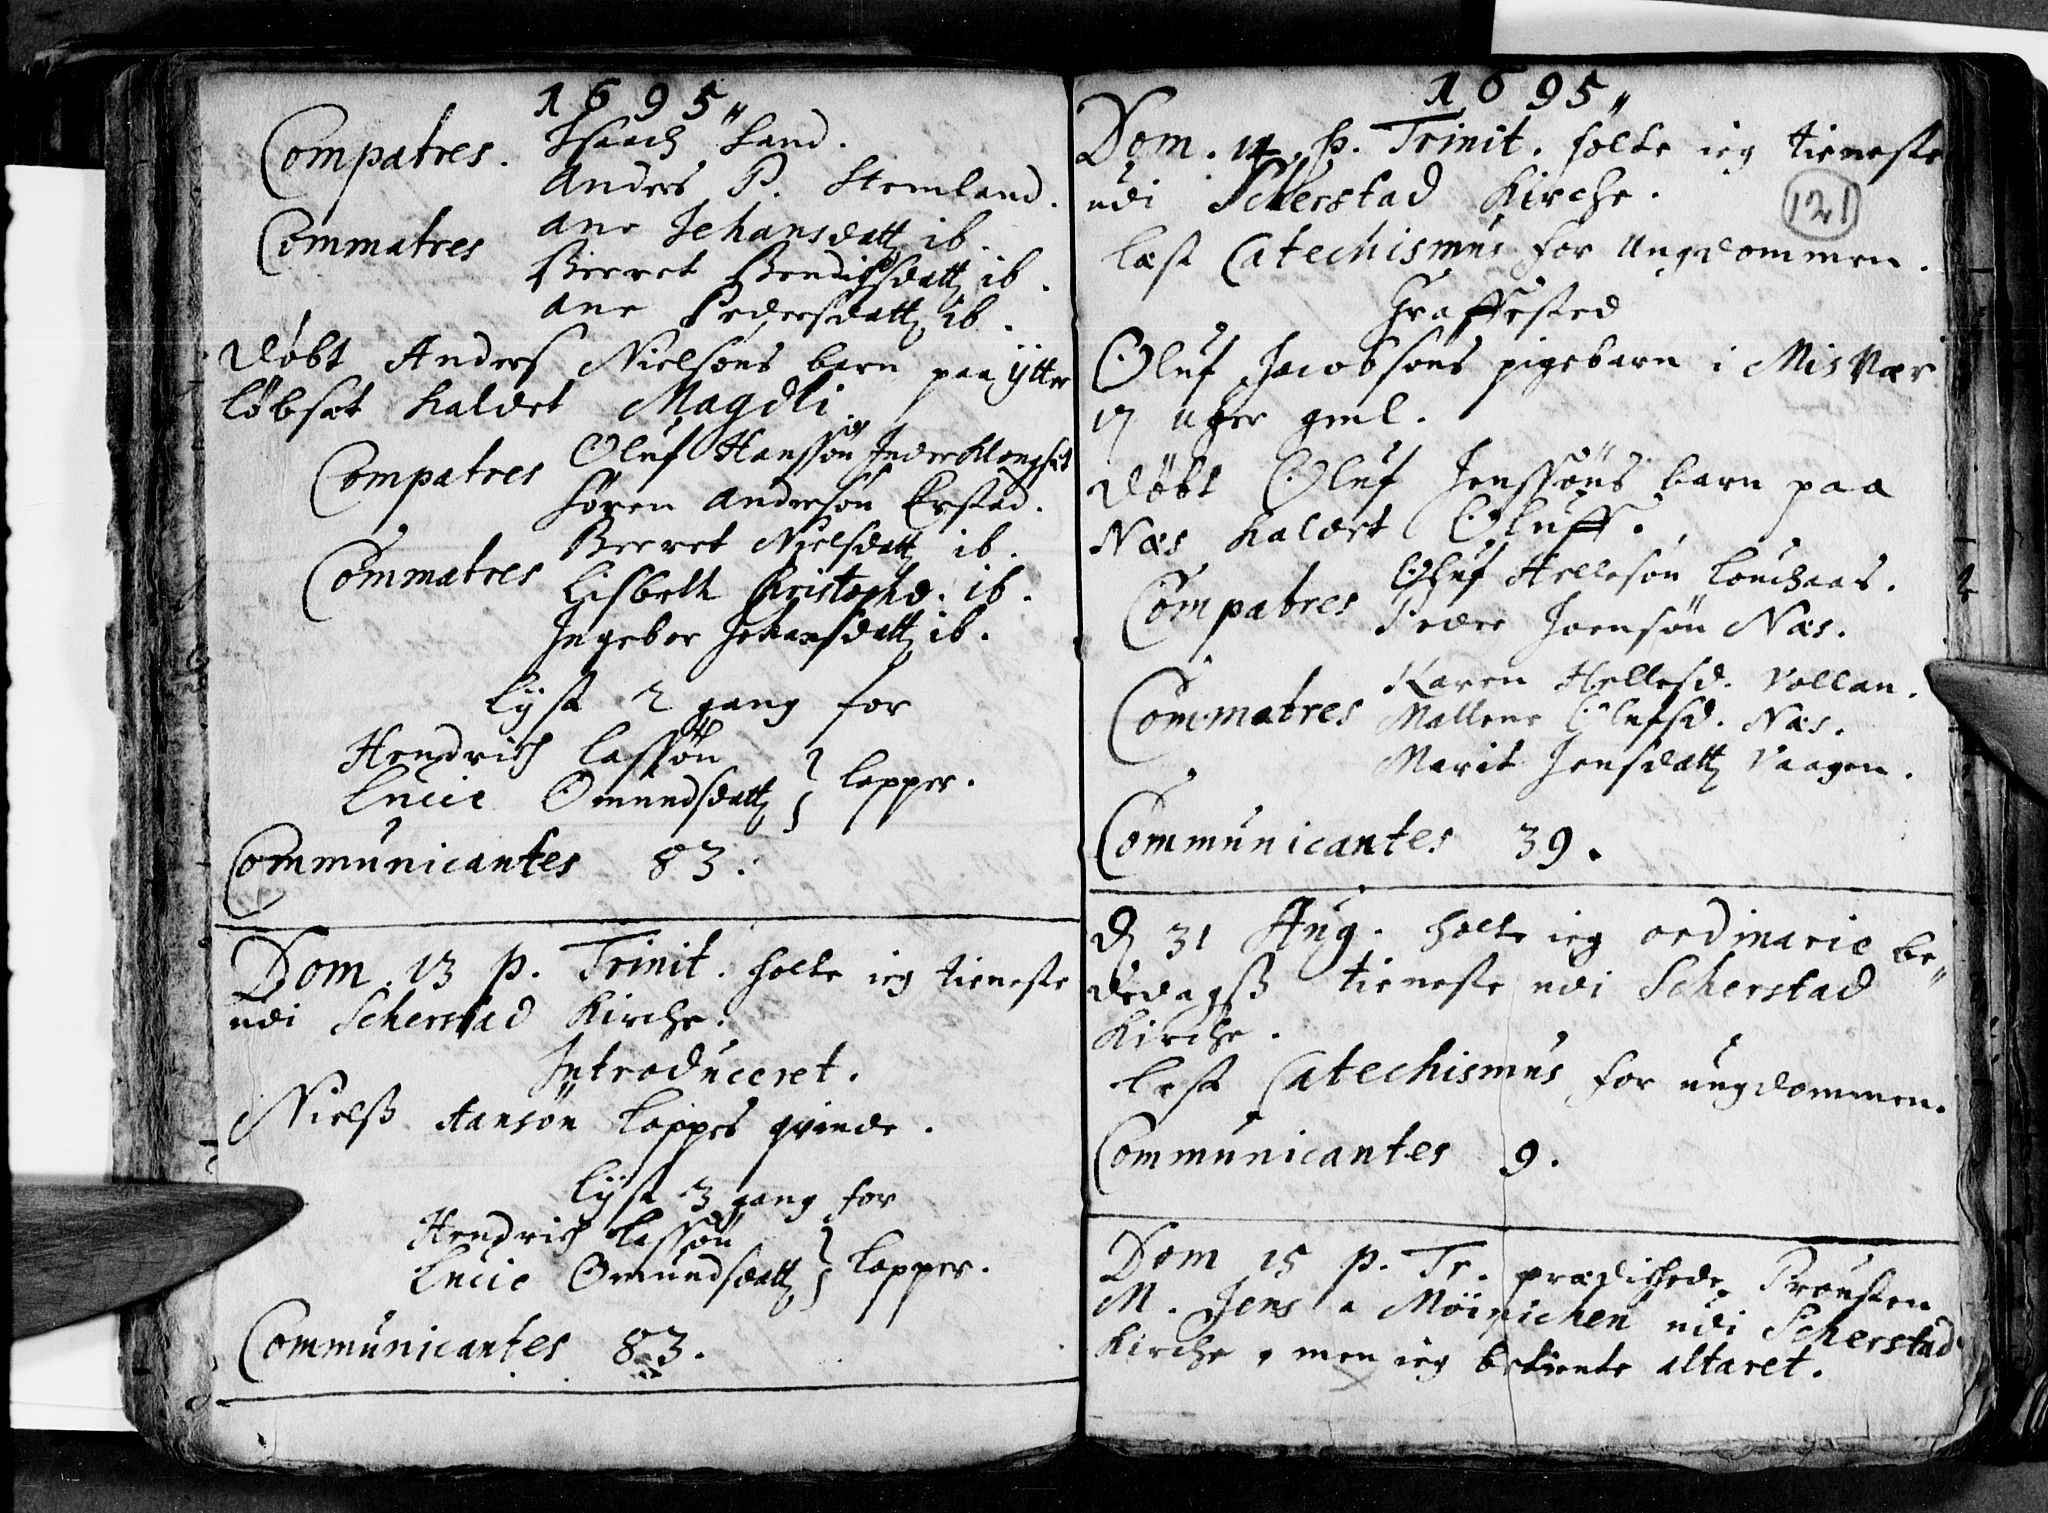 1695"
Compatres. Isaach Sand.
Anders P. Stemland.
Commatres Ane Jehansdatt ib.
Berret Bendichsdatt ib.
Ane Pedersdatt ib.
Døbt Anders Nielsøns barn paa ÿtter
løbset kaldet Magdli.
Compatres Oluf Hanssøn Inder Klongset
Søren Andersøn Erstad.
Berret Nielsdatt ib.
Commatres Lisbeth Christophd. ib.
Ingebor Johansdatt ib.
Lyst 2 gang for
Hendrich Lassøn
Lucie Omundsdatt } Lapper.
Communicantes 83.
Dom. 13 p. Trinit. holte ieg tieneste
udi Scherstad Kirche.
Introduceret.
Nielss Hansøn Lappes qvinde.
Lyst 3 gang for
Hendrich Lassøn
Lucie Omundsdatt } Lapper.
Communicantes 83.
1695"
Dom. 14. p. Trinit. holte ieg tieneste
udi Scherstad Kirche.
121
læst Catechismus for Ungdommen.
Graffested
Oluf Jacobsøns pigebarn i Misvær
17 uger gml.
Døbt Oluf Jenssøns barn paa
Næs kaldet Oluff.
Compatres Oluf Hellesøn
Peder Joensøn Næs.
Karen Hellesd. Vollan.
Commatres Mallene Olufsd. Næs.
Marit Jensdatt Vaagen.
Communicantes 39.
D 31 Aug. holte ieg ordinarie be"
dedagss tieneste udi Scherstad
Kirche.
lest Catechismus for ungdommen.
Communicantes 9.
Dom 15 p. Tr. prædichede Prousten
M. Jens a Möinichen udi Scherstad
Kirche, men ieg betiente altaret.